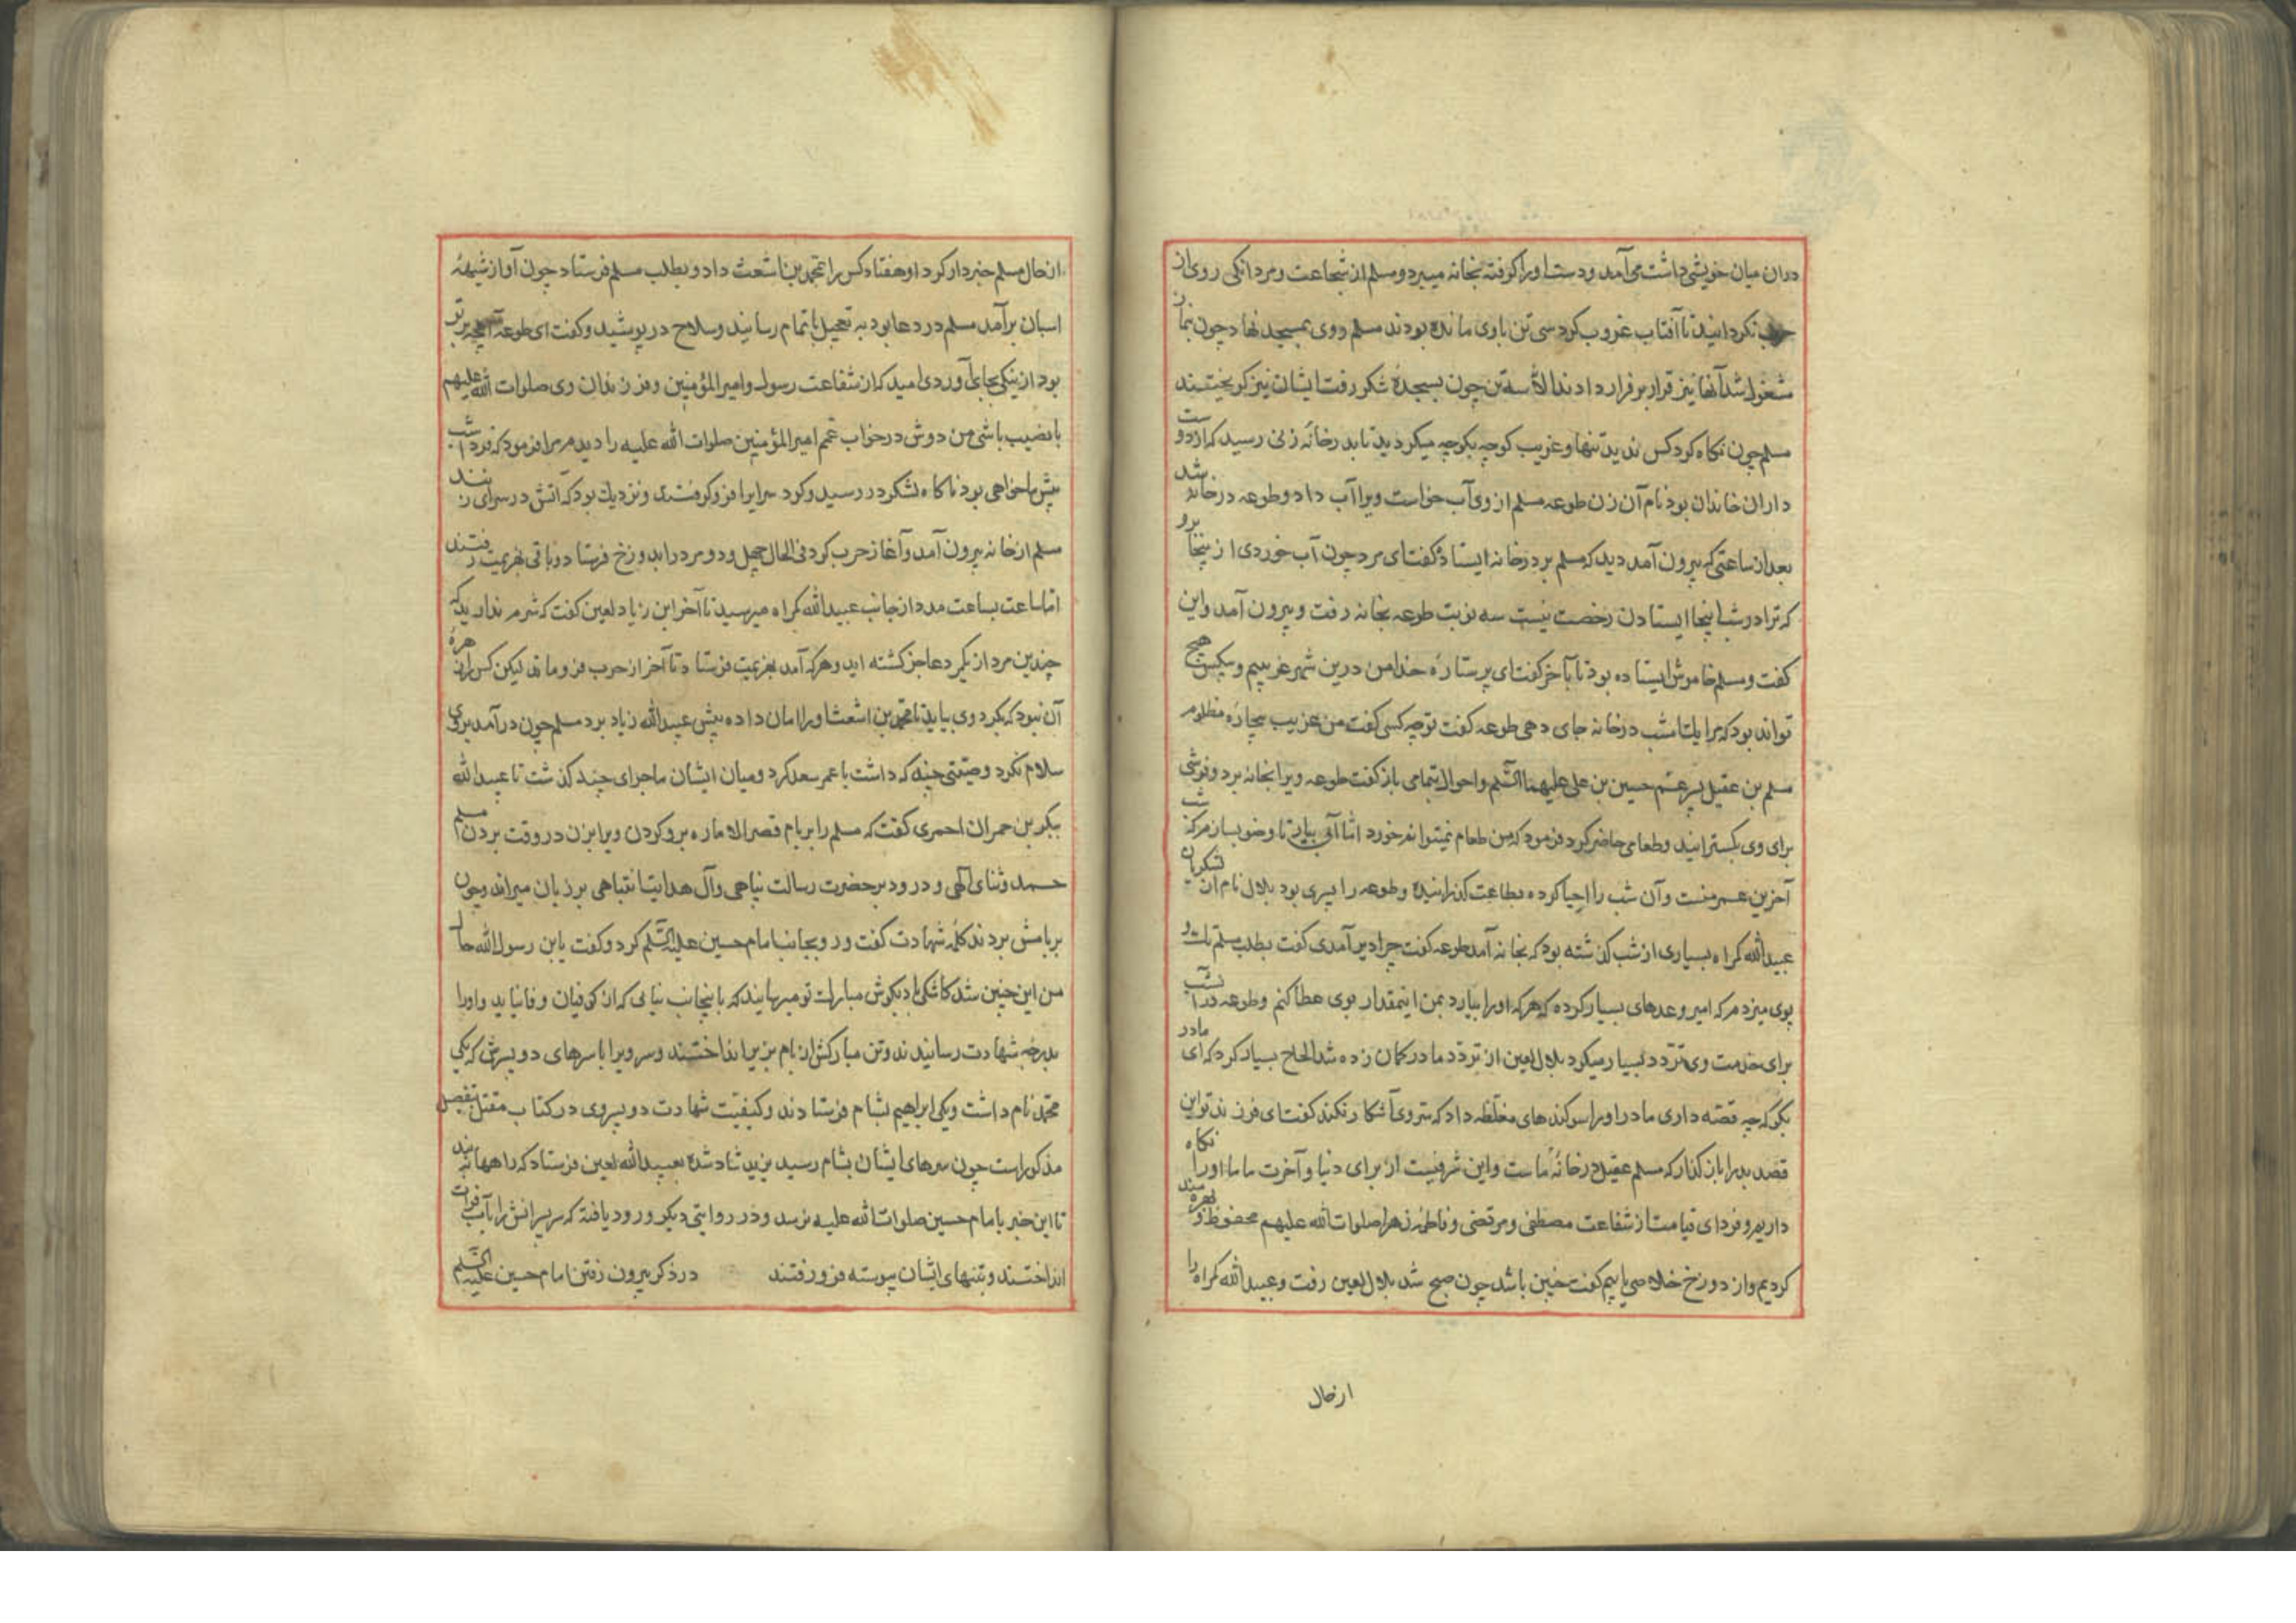 دران میان خویشی داشت می‌آمد ودست اورا کرفته بخانه میبرد ومسلم از شجاعت ومردانکی روی از
حرب نکردانید تا آفتاب غروب کرد سی تن باوی مانده بودند مسلم روی بمسجد نهاد چون بنماز
مشغول شد آنها نیز قرار بر فرار دادند الّا سه تن چون بسجدهٔ شکر رفت ایشان نیز کریختند
مسلم چون نکاه کرد کس ندید تنها وغریب کوچه بکوچه میکردید تا بدر خانهٔ زنی رسید که از دوست
داران خاندان بود نام آن زن طوعه مسلم از وی آب خواست ویرا آب داد وطوعه در خانه شد
بعد از ساعتی که بیرون آمد دید که مسلم بر در خانه ایستاده گفت ای مرد چون آب خوردی از ینجا برو
که ترا در شب اینجا ایستادن رخصت نیست سه نوبت طوعه بخانه رفت وبیرون آمد واین
کفت ومسلم خاموش ایستاده بود تا بآخر کفت ای پرستارهٔ خدا من درین شهر غریبم وبیکس هیچ
تواند بود که مرا یکشب در خانه جای دهی طوعه کفت تو چه کسی کفت من غریب بیچارهٔ مظلوم
مسلم بن عقیل پسر عم حسین بن علی علیهما السّلم واحوال بتمامی باز کفت طوعه ویرا بخانه برد وفرشی
برای وی بکسترانید وطعامی حاضر کرد فرمود که من طعام نمیتوانم خورد امّا آبی بیار تا وضو بسازم که شب
آخرین عمر منست وآن شب را احیا کرده بطاعت کذرانیده وطوعه را پسری بود بلال نام از لشکریان
عبیدالله کمراه بسیاری از شب کذشته بود که بخانه آمد طوعه کفت چرا دیر آمدی کفت بطلب مسلم تک و
پوی میزدم که امیر وعدهای بسیار کرده که هرکه اورا بیارد بمن اینمقدار بوی عطا کنم وطوعه در آنشب
برای خدمت وی تردّد بسیار میکرد بلال لعین از تردّد مادر کمان زده شد الحاح بسیار کرد که ای مادر
بکو که چه قصّه داری مادر اورا سوکندهای مغلّظه داد که سرّ وی آشکار نکند کفت ای فرزند تو این
قصد بد را باز کذار که مسلم عقیل در خانهٔ ماست واین شرفیست از برای دنیا وآخرت ما ما اورا نکاه
داریم وفردای قیامت از شفاعت مصطفی ومرتضی وفاطمهٔ زهرا صلوات الله علیهم محفوظ وبهره‌مند
کردیم واز دوزخ خلاصی یابیم کفت چنین باشد چون صبح شد بلال لعین رفت وعبیدالله کمراه را
ازحال
از حال مسلم خبردار کرد او هفتاد کس را بمحمّد بن اشعث داد وبطلب مسلم فرستاد چون آواز شیههٔ
اسبان برآمد مسلم در دعا بود به تعجیل باتمام رسانید وسلاح در پوشید وکفت ای طوعه آنچه بر تو
بود از نیکی بجای آوردی امید که از شفاعت رسول وامیر المؤمنین وفرزندان وی صلوات الله علیهم
با نصیب باشی من دوش در خواب عمّم امیر المؤمنین صلوات الله علیه را دیدم مرا فرمود که فردا شب
پیش ما خواهی بود ناکاه لشکر در رسید وکرد سرایرا فرو کرفتند ونزدیک بود که آتش در سرای زنند
مسلم از خانه بیرون آمد وآغاز حرب کرد فی الحال چهل ودو مرد را بدوزخ فرستاد وباقی بهزیمت رفتند
امّا ساعت بساعت مدد از جانب عبیدالله کمراه میرسید تا آخر ابن زیاد لعین کفت که شرم ندارید که
چندین مرد از یکمرد عاجز کشته اید وهرکه آمد بهزیمت فرستاد تا آخر از حرب فرو ماند لیکن کس را زهرهٔ
آن نبود که بکرد وی بیاید تا محمّد بن اشعث اورا امان داده پیش عبیدالله زیاد برد مسلم چون در آمد بروی
سلام نکرد وصیّتی چند که داشت با عمر سعد کرد ومیان ایشان ماجرای چند کذشت تا عبیدالله
ببکر بن حمران احمری کفت که مسلم را بر بام قصر الاماره برو کردن ویرا بزن در وقت بردن مسلم
حمد وثنای الهی ودرود بر حضرت رسالت پناهی وآل هدایت انتباهی بر زبان میراند وچون
بر بامش بردند کلمهٔ شهادت کفت ورو بجانب امام حسین علیه السّلم کرد وکفت یابن رسول الله حال
من این چنین شد کاشکی باد بکوش مبارک تو میرسانید که باینجانب نیایی که از کوفیان وفا نیاید واورا
بدرجهٔ شهادت رسانیدند وتن مبارکش از بام بزیر انداختند وسر ویرا با سرهای دو پسرش که یکی
محمّد نام داشت ویکی ابراهیم بشام فرستادند وکیفیّت شهادت دو پسر وی در کتاب مقتل بتفصیل
مذکور است چون سرهای ایشان بشام رسید یزید شاد شده بعبیدالله لعین فرستاد که راهها ببندند
تا این خبر بامام حسین صلوات الله علیه نرسد ودر روایتی دیکر ورود یافته که سر پسرانش را بآب فرات
انداختند وتنهای ایشان پیوسته فرو رفتند در ذکر بیرون رفتن امام حسین علیه السّلم